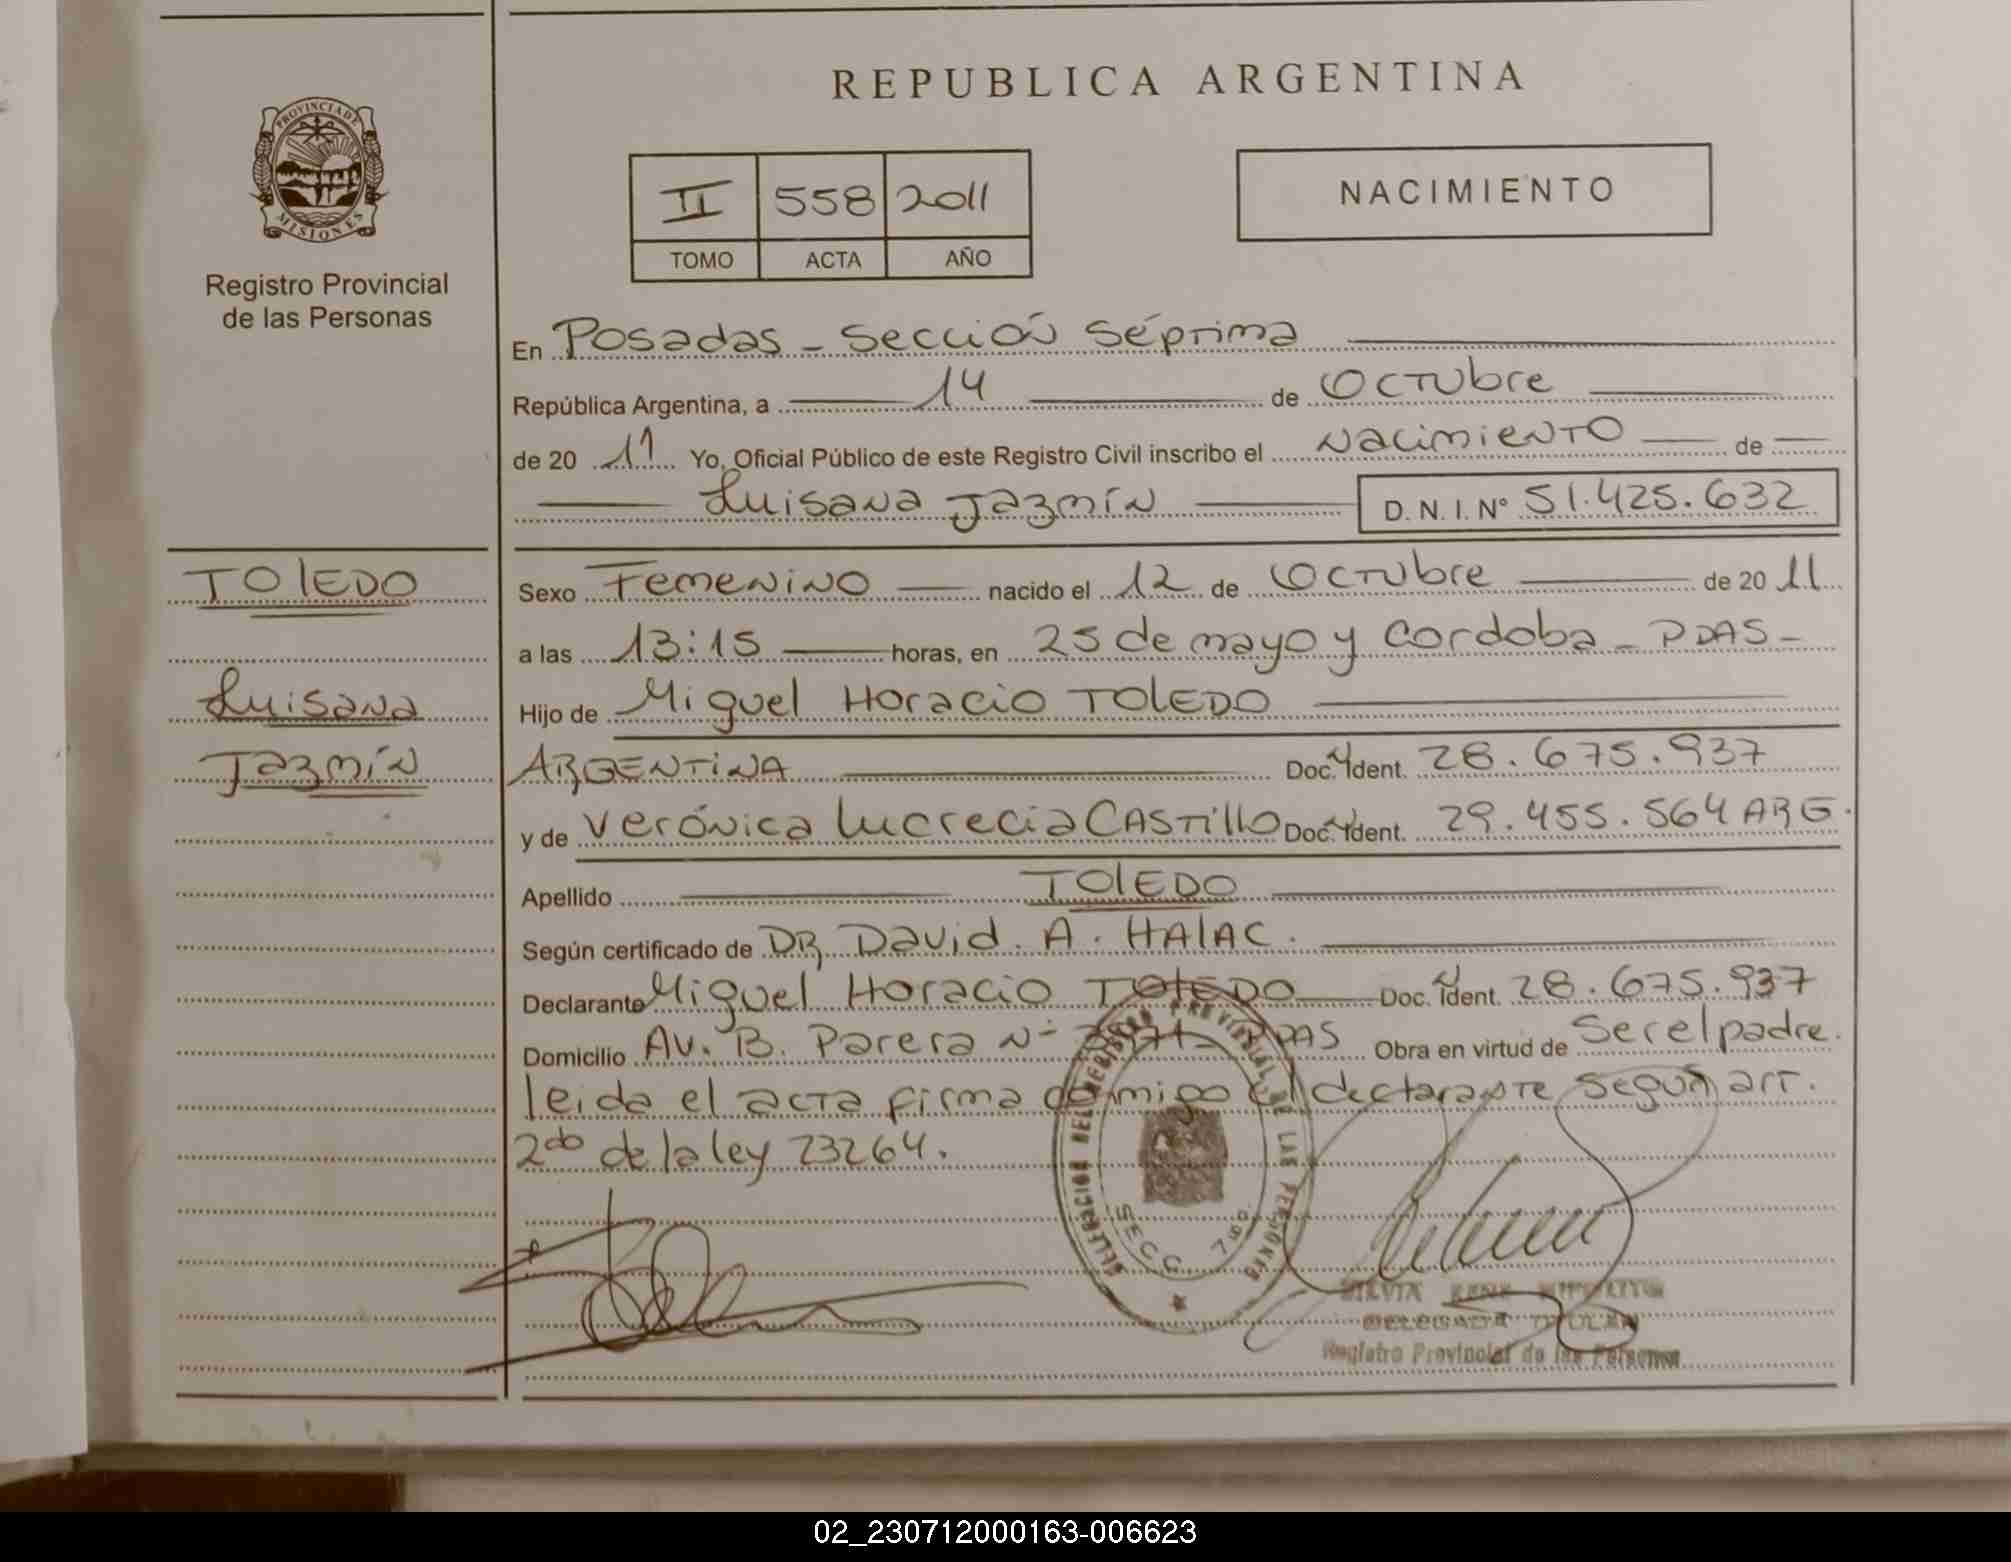 REPUBLICA ARGENTINA
PROVINCIA DE
MISIONES
Registro Provincial
de las Personas
II 558 2011
TOMO ACTA AÑO
NACIMIENTO
En Posadas - Sección Séptima
República Argentina, a 14 de Octubre
de 20 11 Yo, Oficial Público de este Registro Civil inscribo el Nacimiento de
Luisana Jazmín D. N. I. Nº 51.425.632
TOLEDO
Luisana
Jazmín
Sexo Femenino nacido el 12 de Octubre de 20 11
a las 13:15 horas, en 25 de mayo y Cordoba - PDAS -
Hijo de Miguel Horacio TOLEDO
ARGENTINA Doc. Ident. 28.675.937
y de Verónica Lucrecia CASTILLO Doc. Ident. 29.455.564 ARG.
Apellido TOLEDO
Según certificado de DR. David. A. HALAC.
Declarante Miguel Horacio TOLEDO Doc. Ident. 28.675.937
Domicilio Av. B. Parera Nº PDAS Obra en virtud de Ser el padre.
leida el acta firma conmigo el declarante según art.
2do de la ley 23264.
DELEGACION DEL REGISTRO PROVINCIAL DE LAS PERSONAS
SECC. 7ma
SILVIA
DELEGADA TITULAR
Registro Provincial de las Personas
02_230712000163-006623